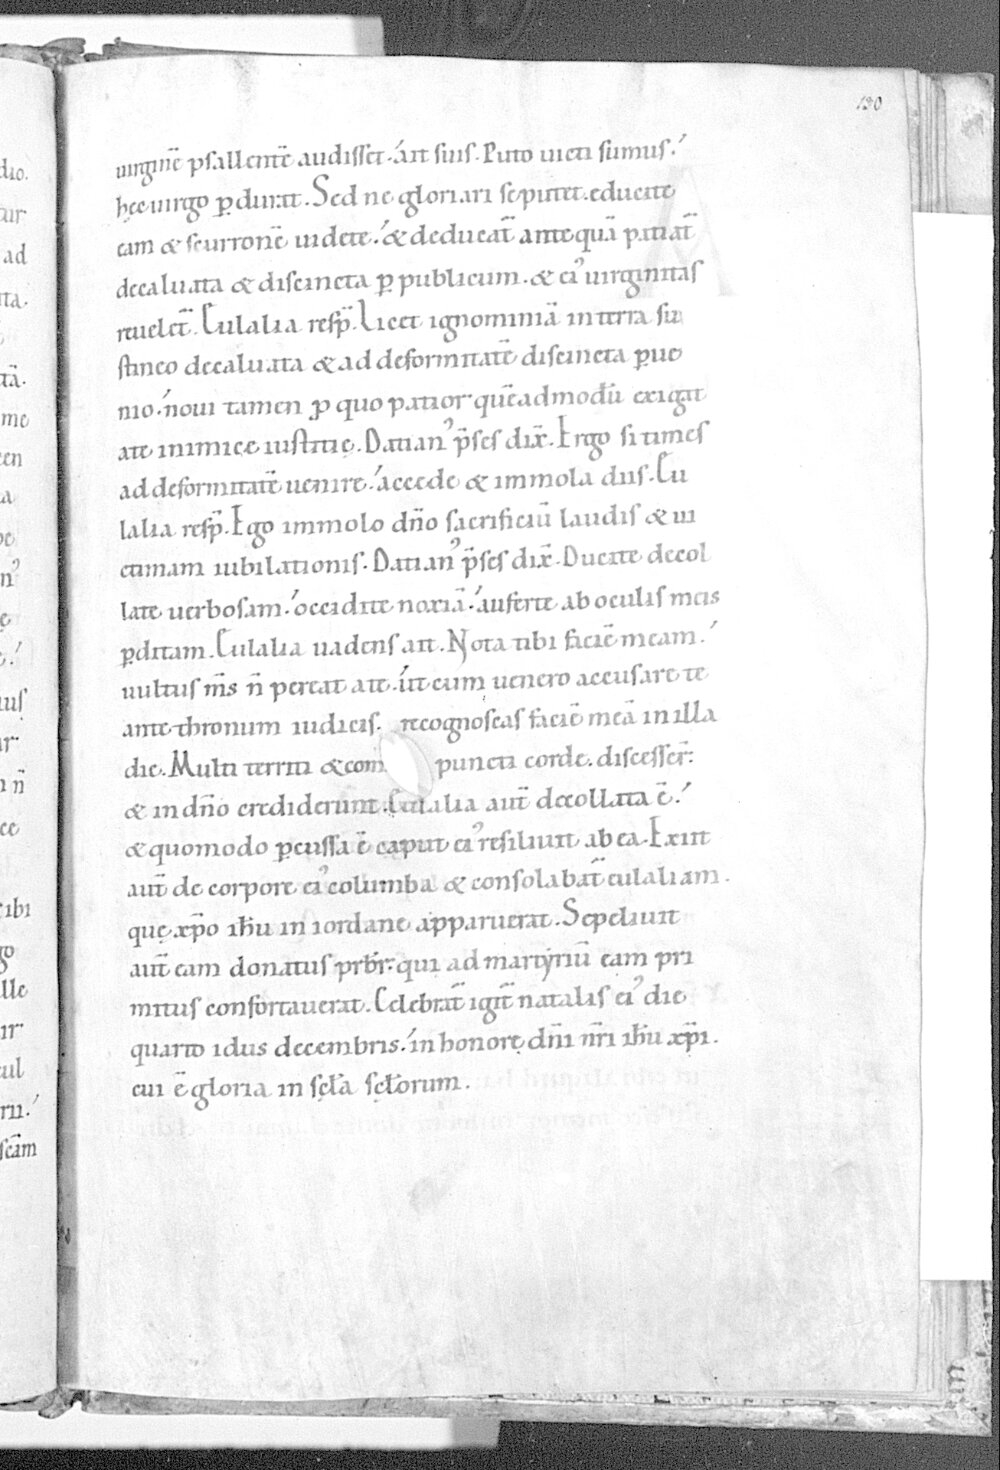 130
uirginē psallentē audisset. ait suis. Puto uicti sumus.
hęc uirgo ꝑdurat. Sed ne gloriari se putet. educite
eam & scurronē uidete. & deducat̄ antequā patiat̄
decaluata & discincta ꝑ publicum. & ei᾽ uirginitas
reuelet̄. Eulalia resp̄. Licet ignominiā in terra su
stineo decaluata & ad deformitatē discincta ꝑue
nio. noui tamen ꝓ quo patior quēadmodū exigat
a te inimicę iustitię. Datian᾽ p̄ses dix̄. Ergo si times
ad deformitatē uenire. accede & immola diis. Eu
lalia resp̄. Ego immolo dn̄o sacrificiū laudis & ui
ctimam iubilationis. Datian᾽ p̄ses dix̄. Ducite decol
late uerbosam. occidite noxiā. auferte ab oculis meis
ꝑditam. Eulalia uadens ait. Nota tibi faciē meam.
uultus m̄s n̄ pereat a te. ut cum uenero accusare te
ante thronum iudicis. recognoscas faciē meā in illa
die. Multi territi & com puncti corde. discesser̄.
& in dn̄o crediderunt. Eulalia aut̄ decollata ē.
& quomodo ꝑcussa ē caput ei᾽ resiliuit ab ea. Exiit
aut̄ de corpore ei᾽ columba & consolabat̄ eulaliam.
quę xp̄o ih̄u in iordane apparuerat. Sepeliuit
aut̄ eam donatus prb̄r. qui ad martyriū eam pri
mitus confortauerat. Celebrat̄ igit̄ natalis ei᾽ die
quarto idus decembris. in honore dn̄i nr̄i ih̄u xp̄i.
cui ē gloria in scl̄a scl̄orum.